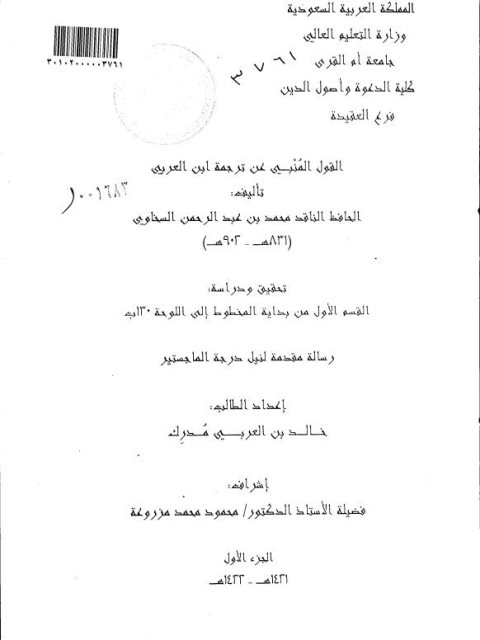 المملكة العربية السعودية
وزارة التعليم العالي
جامعة أم القرى
كلية الدعوة وأصول الدين
فرع العقيدة
٣٠١٠٢٠٠٠٠٠٣٧٦١
٣٧٦١
القول المُنْبـي عن ترجمة ابن العربي
تأليف:
٠٠١٦٨٣
الحافظ الناقد محمد بن عبد الرحمن السخاوي
(٨٣١هـ - ٩٠٢هـ)
تحقيق ودراسة:
القسم الأول من بداية المخطوط إلى اللوحة ١٣٠ب
رسالة مقدمة لنيل درجة الماجستير
إعداد الطالب:
خـالـد بن العربـي مُدرِك
إشراف:
فضيلة الأستاذ الدكتور/ محمود محمد مزروعة
الجزء الأول
١٤٢١هـ - ١٤٢٢هـ